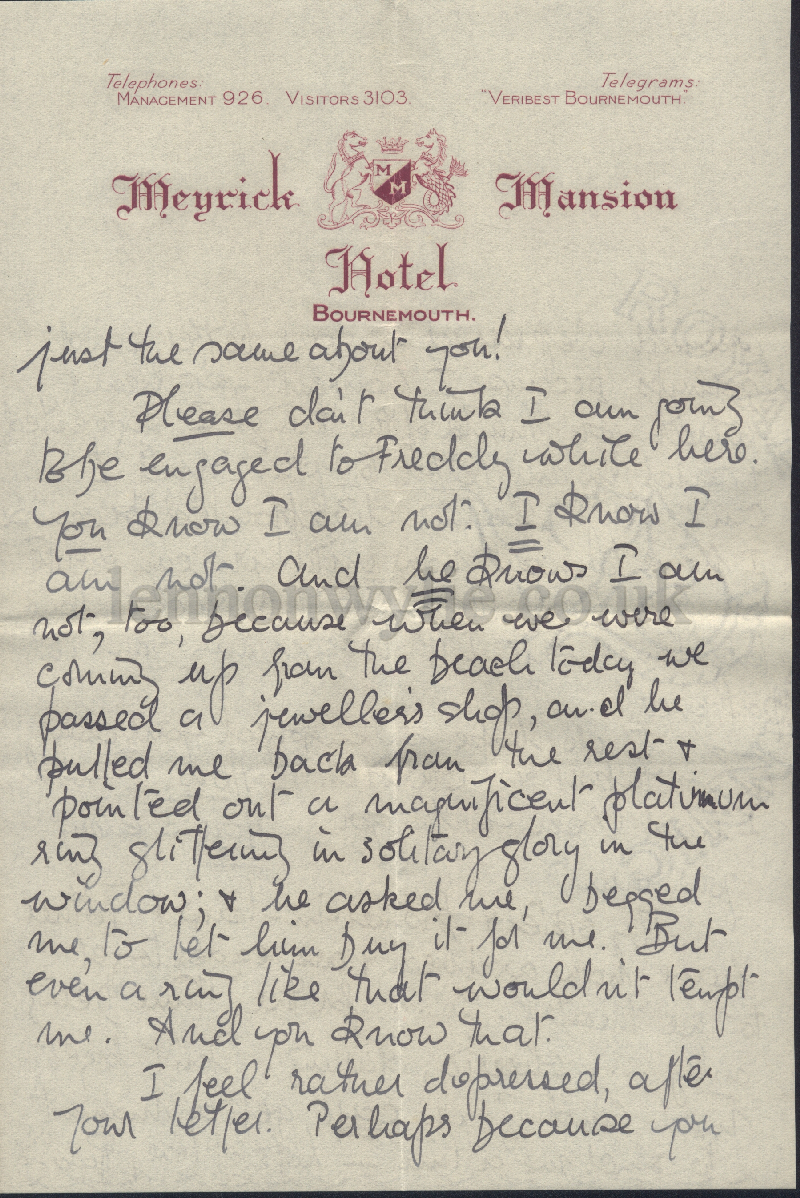 Telephones: Telegrams:
MANAGEMENT 926. VISITORS 3103. "VERIBEST BOURNEMOUTH."
M M
Meyrick Mansion
Hotel
BOURNEMOUTH.
just the same about you!
Please don't think I am going
to be engaged to Freddy while here.
You know I am not. I know I
am not. And he knows I am
not, too, because when we were
coming up from the beach today we
passed a jeweller's shop, and he
pulled me back from the rest &
pointed out a magnificent platinum
ring glittering in solitary glory in the
window; & he asked me, begged
me, to let him buy it for me. But
even a ring like that wouldn't tempt
me. And you know that.
I feel rather depressed, after
your letter. Perhaps because you
lennonwylie.co.uk